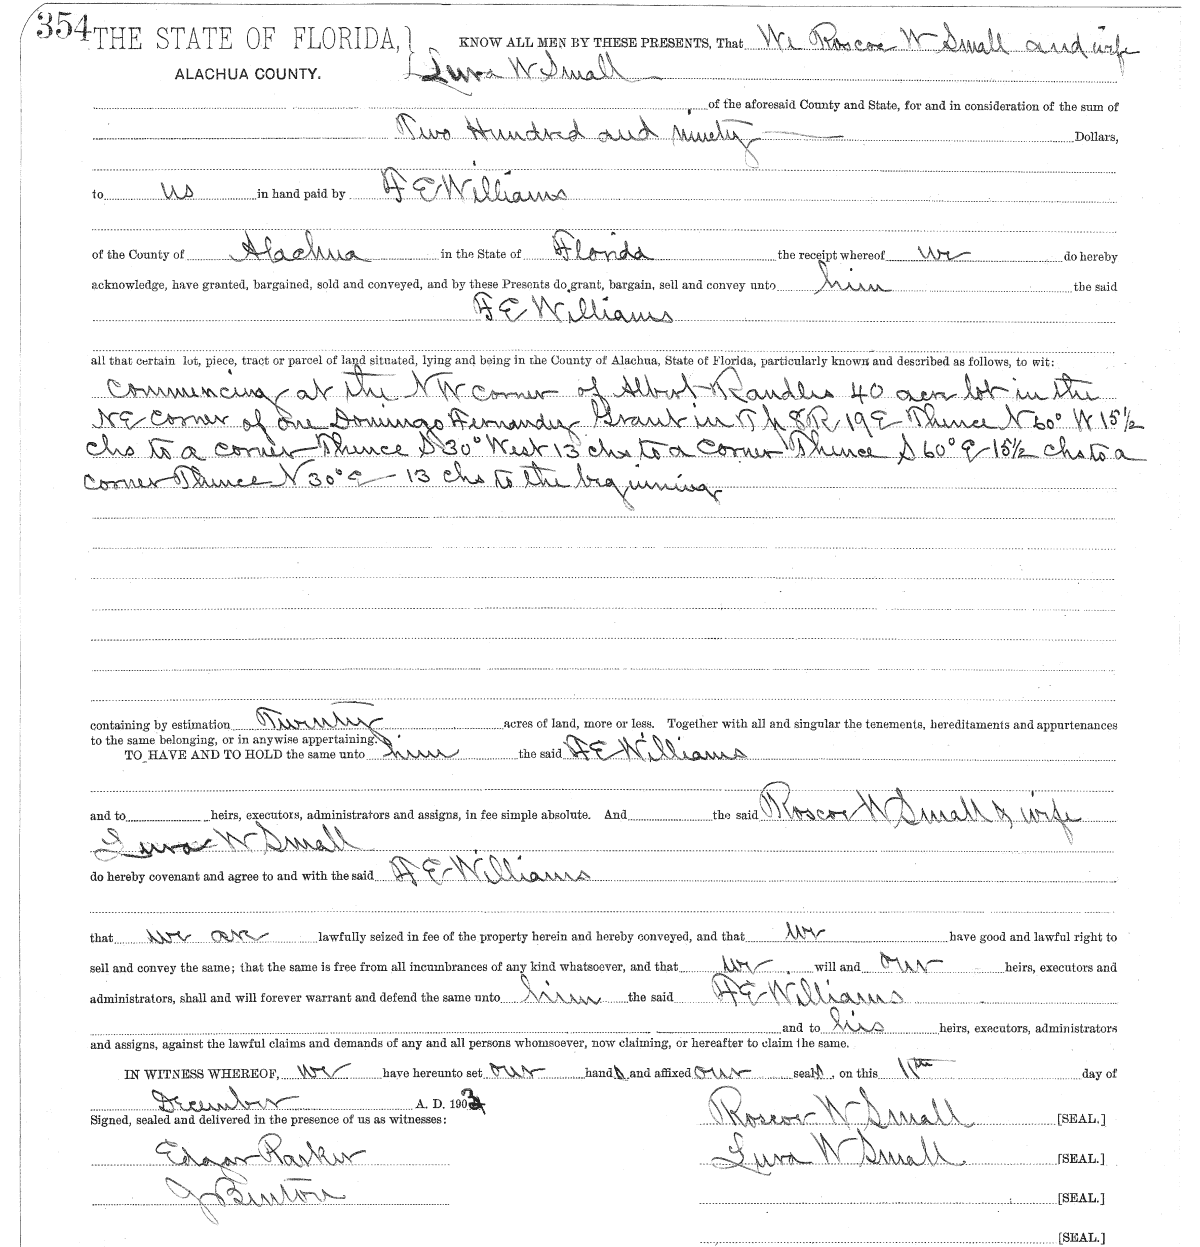 354
THE STATE OF FLORIDA,} KNOW ALL MEN BY THESE PRESENTS, That We Roscoe W Small and wife
ALACHUA COUNTY. Lura W Small
of the aforesaid County and State, for and in consideration of the sum of
Two Hundred and ninety Dollars,
to us in hand paid by F E Williams
of the County of Alachua in the State of Florida the receipt whereof we do hereby
acknowledge, have granted, bargained, sold and conveyed, and by these Presents do grant, bargain, sell and convey unto him the said
F E Williams
all that certain lot, piece, tract or parcel of land situated, lying and being in the County of Alachua, State of Florida, particularly known and described as follows, to wit:
Commencing at the NW corner of Albert Randles 40 acre lot in the
NE corner of one Domingo Fernandez Grant in T 8 R 19 E Thence N 60° W 15½
chs to a corner Thence S 30° West 13 chs to a corner Thence S 60° E 15½ chs to a
corner Thence N 30° E 13 chs to the beginning
containing by estimation Twenty acres of land, more or less. Together with all and singular the tenements, hereditaments and appurtenances
to the same belonging, or in anywise appertaining.
TO HAVE AND TO HOLD the same unto him the said F E Williams
and to heirs, executors, administrators and assigns, in fee simple absolute. And the said Roscoe W Small & wife
Lura W Small
do hereby covenant and agree to and with the said F E Williams
that we are lawfully seized in fee of the property herein and hereby conveyed, and that we have good and lawful right to
sell and convey the same; that the same is free from all incumbrances of any kind whatsoever, and that we will and our heirs, executors and
administrators, shall and will forever warrant and defend the same unto him the said F E Williams
and to his heirs, executors, administrators
and assigns, against the lawful claims and demands of any and all persons whomsoever, now claiming, or hereafter to claim the same.
IN WITNESS WHEREOF, we have hereunto set our hands and affixed our seals, on this 11th day of
December A. D. 1903
Signed, sealed and delivered in the presence of us as witnesses: Roscoe W Small [SEAL.]
Edgar Parker Lura W Small [SEAL.]
J Binton [SEAL.]
[SEAL.]